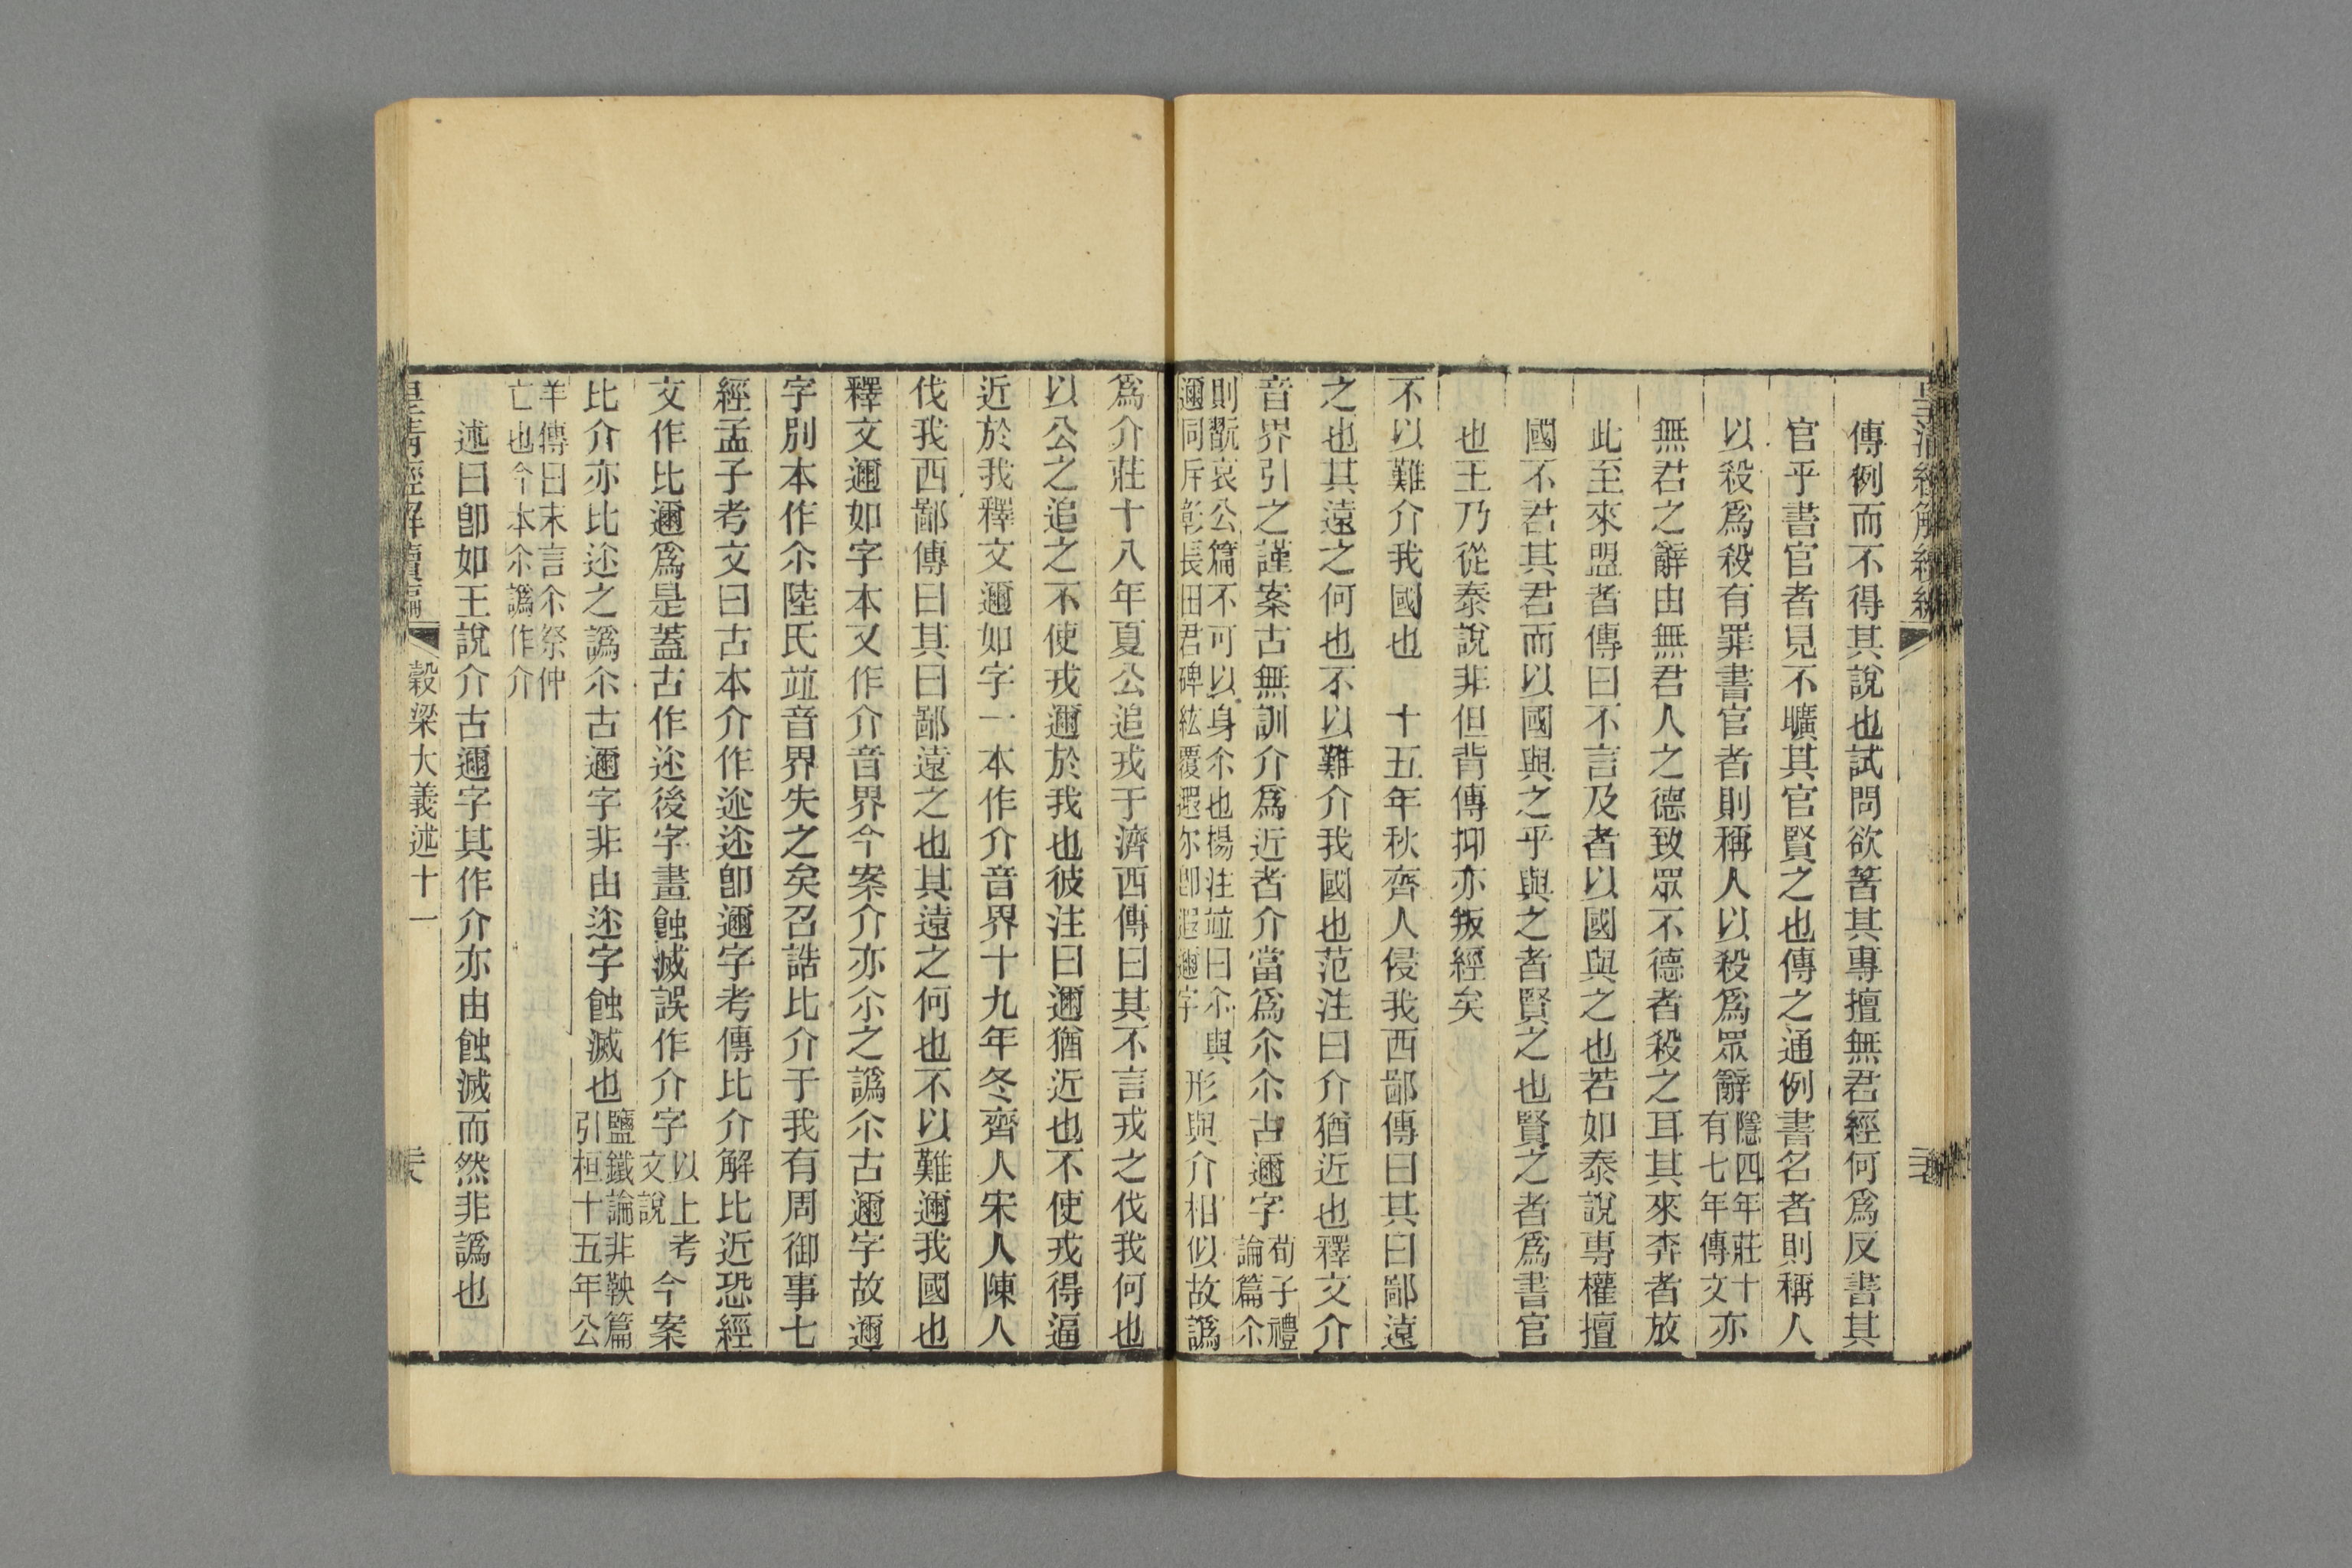 傳例而不得其說也試問欲著其專擅無君經何爲反書其
官乎書官者見不曠其官賢之也傳之通例書名者則稱人
以殺爲殺有罪書官者則稱人以殺爲眾辭隱四年莊十有七年傳文亦
無君之辭由無君人之德致眾不德者殺之耳其來奔者放
此至來盟者傳曰不言及者以國與之也若如泰說專權擅
國不君其君而以國與之乎與之者賢之也賢之者爲書官
也王乃從泰說非但背傳抑亦叛經矣
不以難介我國也　十五年秋齊人侵我西鄙傳曰其曰鄙遠
之也其遠之何也不以難介我國也范注曰介猶近也釋文介
音界引之謹案古無訓介爲近者介當爲尒尒古邇字荀子禮論篇尒
則翫哀公篇不可以身尒也楊注竝曰尒與邇同斥彰長田君碑紘覆遐尒卽遐邇字形與介相似故譌
爲介莊十八年夏公追戎于濟西傳曰其不言戎之伐我何也
以公之追之不使戎邇於我也彼注曰邇猶近也不使戎得逼
近於我釋文邇如字一本作介音界十九年冬齊人宋人陳人
伐我西鄙傳曰其曰鄙遠之也其遠之何也不以難邇我國也
釋文邇如字本又作介音界今案介亦尒之譌尒古邇字故邇
字別本作尒陸氏竝音界失之矣召誥比介于我有周御事七
經孟子考文曰古本介作迩迩卽邇字考傳比介解比近恐經
文作比邇爲是蓋古作迩後字畫蝕滅誤作介字以上考文說今案
比介亦比迩之譌尒古邇字非由迩字蝕滅也鹽鐵論非鞅篇引桓十五年公
羊傳曰末言尒祭仲亡也今本尒譌作介
述曰卽如王說介古邇字其作介亦由蝕滅而然非譌也
皇清經解續編
穀梁大義述十一